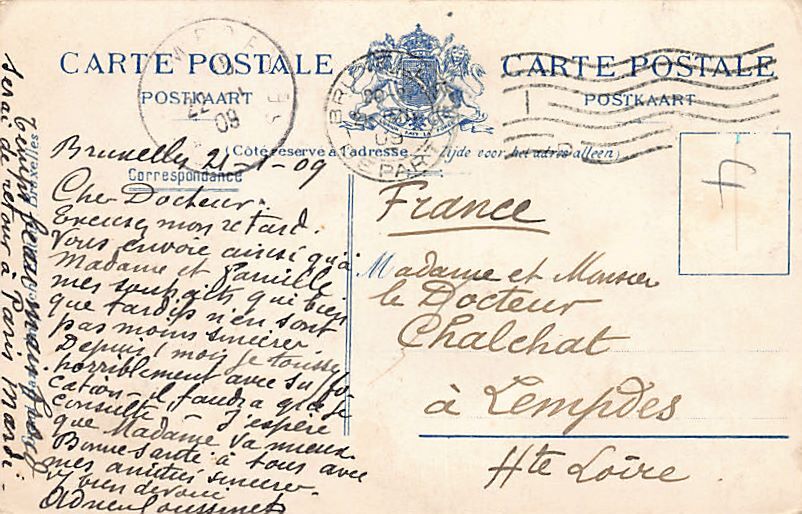 CARTE POSTALE
POSTKAART
CARTE POSTALE
POSTKAART
(Côté réservé à l'adresse. Zijde voor het adres alleen)
Correspondance
Bruxelles 21-1-09
Cher Docteur.
Excusez mon retard.
Vous envoie ainsi qu'à
Madame et Famille
mes souhaits qui bien
que tardifs n'en sont
pas moins sincères.
Depuis 1 mois je tousse
horriblement avec suffo
cation - il faudra que je
consulte - J'espère
que Madame va mieux.
Bonne santé à tous avec
mes amitiés sincères.
Vn bien dévoué
Adrien
temps beau mais
serai de retour à Paris Mardi -
Bruxelles
France
Madame et Monsieur
le Docteur
Chalchat
à Lempdes
Hte Loire.
4
22
09
PAR